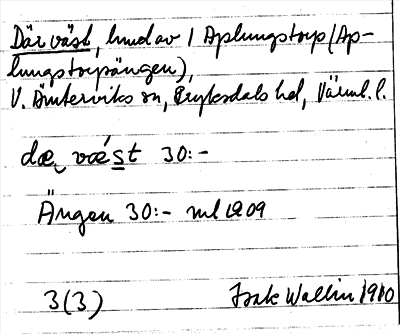 Där väst, hmd av 1 Aplungstorp (Ap-
lungstorpängen),
V. Ämterviks sn, Fryksdals hd, Värml. l.
dæ, vǽst 30:-
Ängen 30:- ml 1909
3(3) Isak Wallin 1910